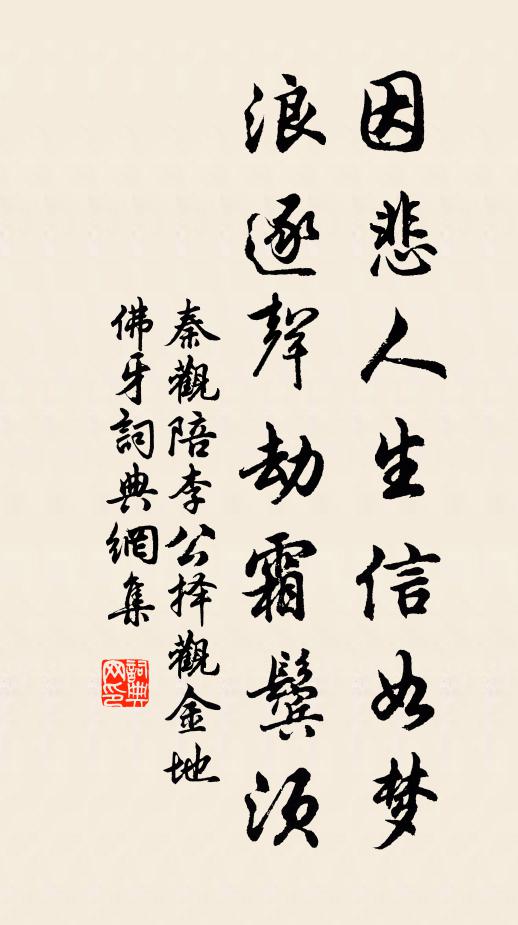 因悲人生信如梦
浪逐聲劫霜鬓须
秦觀陪李公择觀金地
佛牙詞典網集
詞典网印